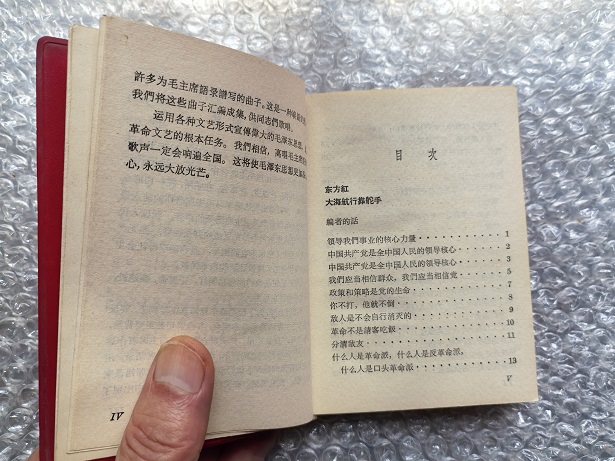 許多为毛主席語录譜写的曲子。这是一种嶄新的
我們将这些曲子汇編成集，供同志們歌唱。
运用各种文艺形式宣傳偉大的毛澤东思想，
革命文艺的根本任务。我們相信，高唱毛主席
歌声一定会响遍全国。这将使毛澤东思想更
心，永远大放光芒。
IV
目次
东方紅
大海航行靠舵手
編者的話
領导我們事业的核心力量 1
中国共产党是全中国人民的領导核心 2
中国共产党是全中国人民的領导核心 3
我們应当相信群众，我們应当相信党 5
政策和策略是党的生命 7
你不打，他就不倒 8
敌人是不会自行消灭的 9
革命不是請客吃飯 10
分清敌友 11
什么人是革命派，什么人是反革命派，
什么人是口头革命派 13
V